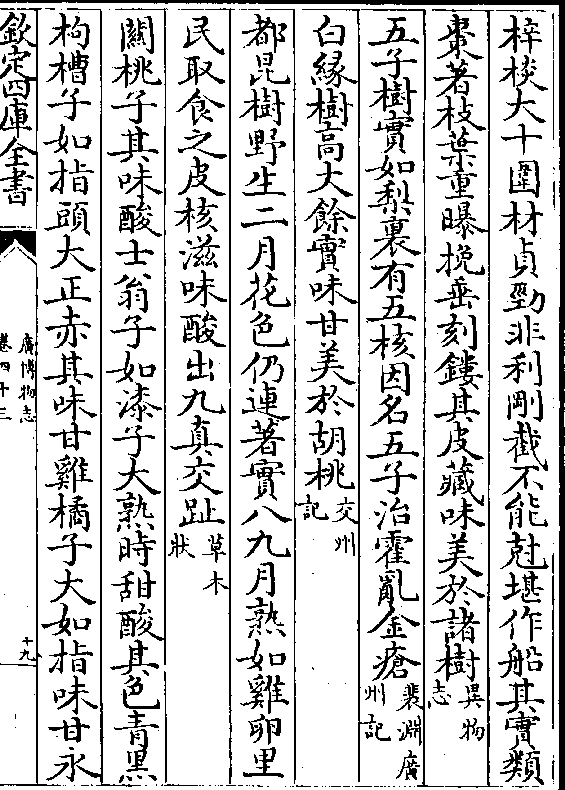 梓棪大十圍材貞勁非利剛截不能尅堪作船其實類
棗著枝葉重曝挽垂刻鏤其皮藏味美於諸樹異物志
五子樹實如梨裏有五核因名五子治霍亂金瘡裴淵廣州記
白緣樹高大餘實味甘美於胡桃交州記
都昆樹野生二月花色仍連著實八九月熟如雞卵里
民取食之皮核滋味酸出九真交趾草木狀
關桃子其味酸士翁子如漆子大熟時甜酸其色青黑
枸槽子如指頭大正赤其味甘雞橘子大如指味甘永
欽定四庫全書
廣博物志
卷四十三
十九